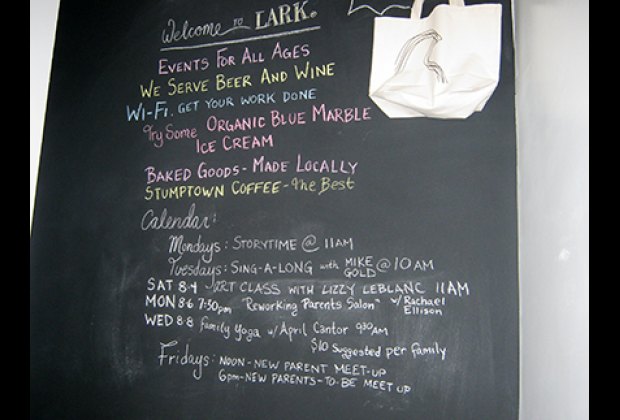 Welcome to LARK.
EVENTS FOR ALL AGES
WE SERVE BEER AND WINE
WI-FI. GET YOUR WORK DONE
Try Some ORGANIC BLUE MARBLE
ICE CREAM
BAKED GOODS - MADE LOCALLY
STUMPTOWN COFFEE - The Best
Calendar:
Mondays: STORYTIME @ 11AM
Tuesdays: SING-A-LONG with MIKE GOLD @ 10 AM
SAT 8-4 ART CLASS WITH LIZZY LEBLANC 11AM
MON 8-6 7:30pm "Reworking Parents Salon" w/ Rachael Ellison
WED 8-8 Family Yoga w/ April Cantor 9:30AM
$10 Suggested per family
Fridays: NOON - NEW PARENT MEET-UP
6pm - NEW PARENTS-TO-BE MEET UP